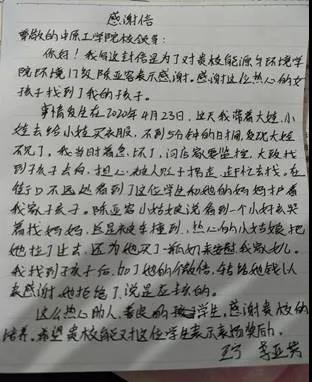 感谢信
尊敬的中原工学院校领导：
你好！我写这封信是为了对贵校能源与环境学
院环境17级陈亚容表示感谢。感谢这位热心的女
孩子找到了我的孩子。
事情发生在2020年4月23日，这天我带着大娃、小
娃去给小娃买衣服，不到5分钟的时间，发现大娃
不见了，我当时着急坏了，问店家要监控，大致找
到了孩子去向，担心被人贩子拐走，赶忙去找，在
路口不远处看到了这位学生和她的妈妈护着
我家孩子。陈亚容小姑娘说看到一个小孩哭
着找妈妈，还差点被车撞到，热心的小姑娘把
她拉了过去，还为她买了一瓶奶来安慰我家女儿。
我找到孩子后，加了她的微信，转给她钱以
表感谢，她拒绝了，说是应该的。
这么热心助人、善良的孩子学生，感谢贵校的
培养。希望贵校能对这位学生表示表扬奖励。
李亚芳